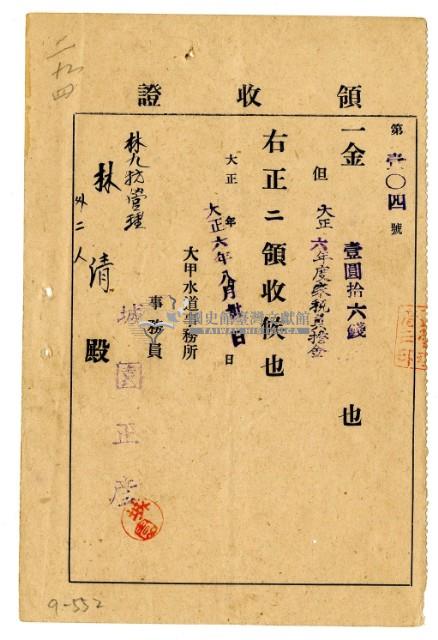 領收證
第壹〇四號
一金 壹圓拾六錢 也
但 大正六年度
右正ニ領收候也
大正 年 月 日
大正六年八月廿日
大甲水道事務所
事務員
城園正彦
林九枋管理
林清 殿
外二人
二九四
國史館臺灣文獻館
TAIWAN HISTORICA
9-552